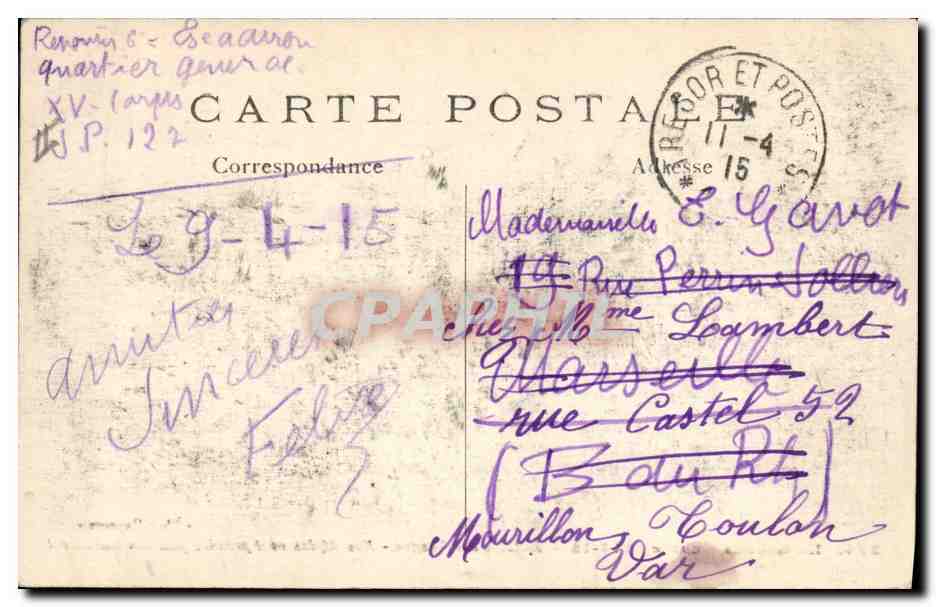 Escadron
quartier general
XV - Corps
SP. 122
CARTE POSTALE
Correspondance
Adresse
TRESOR ET POSTES
11 - 4
15
Le 9-4-15
amitiés
Sinceres
Mademoiselle E. Gavot
19 Rue Perrin Sollier
chez Mme Lambert
Marseille
rue Castel 52
(B du Rh)
Mourillon, Toulon
Var
CPARAMA